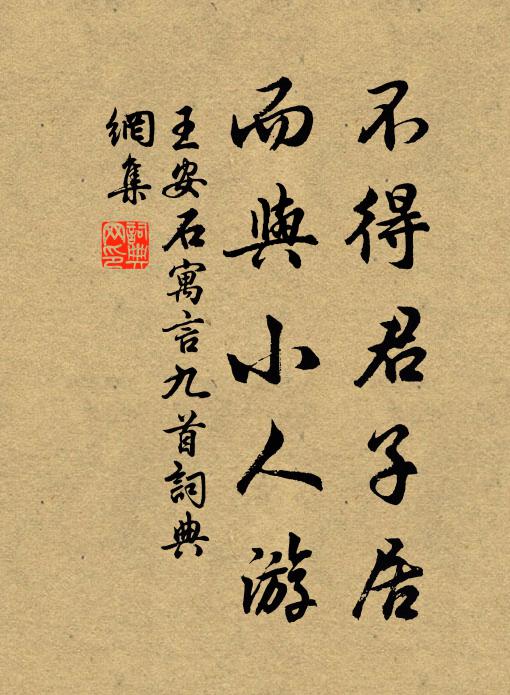 不得君子居
而與小人游
王安石寓言九首詞典
網集
詞典
网印